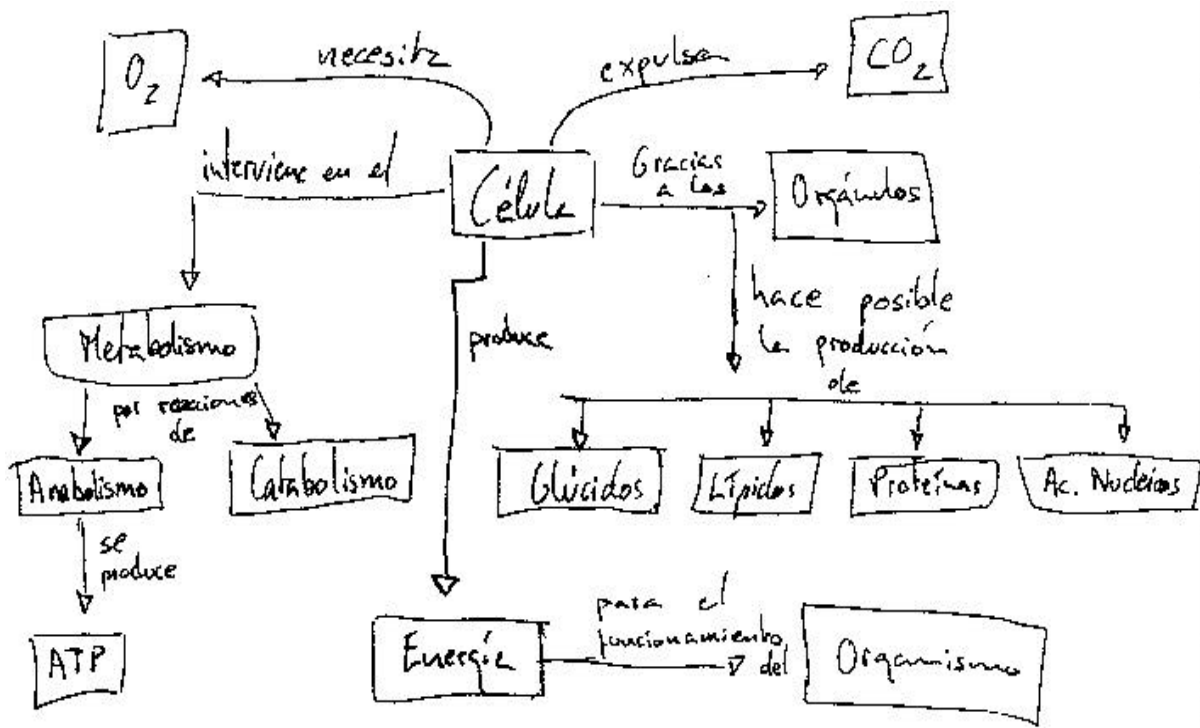 O2
necesita
expulsa
CO2
interviene en el
Célula
Gracias
a los
Orgánulos
hace posible
la producción
de
Metabolismo
produce
por reacciones
de
Anabolismo
Catabolismo
Glúcidos
Lípidos
Proteínas
Ac. Nucleicos
se
produce
ATP
Energía
para el
funcionamiento
del
Organismo